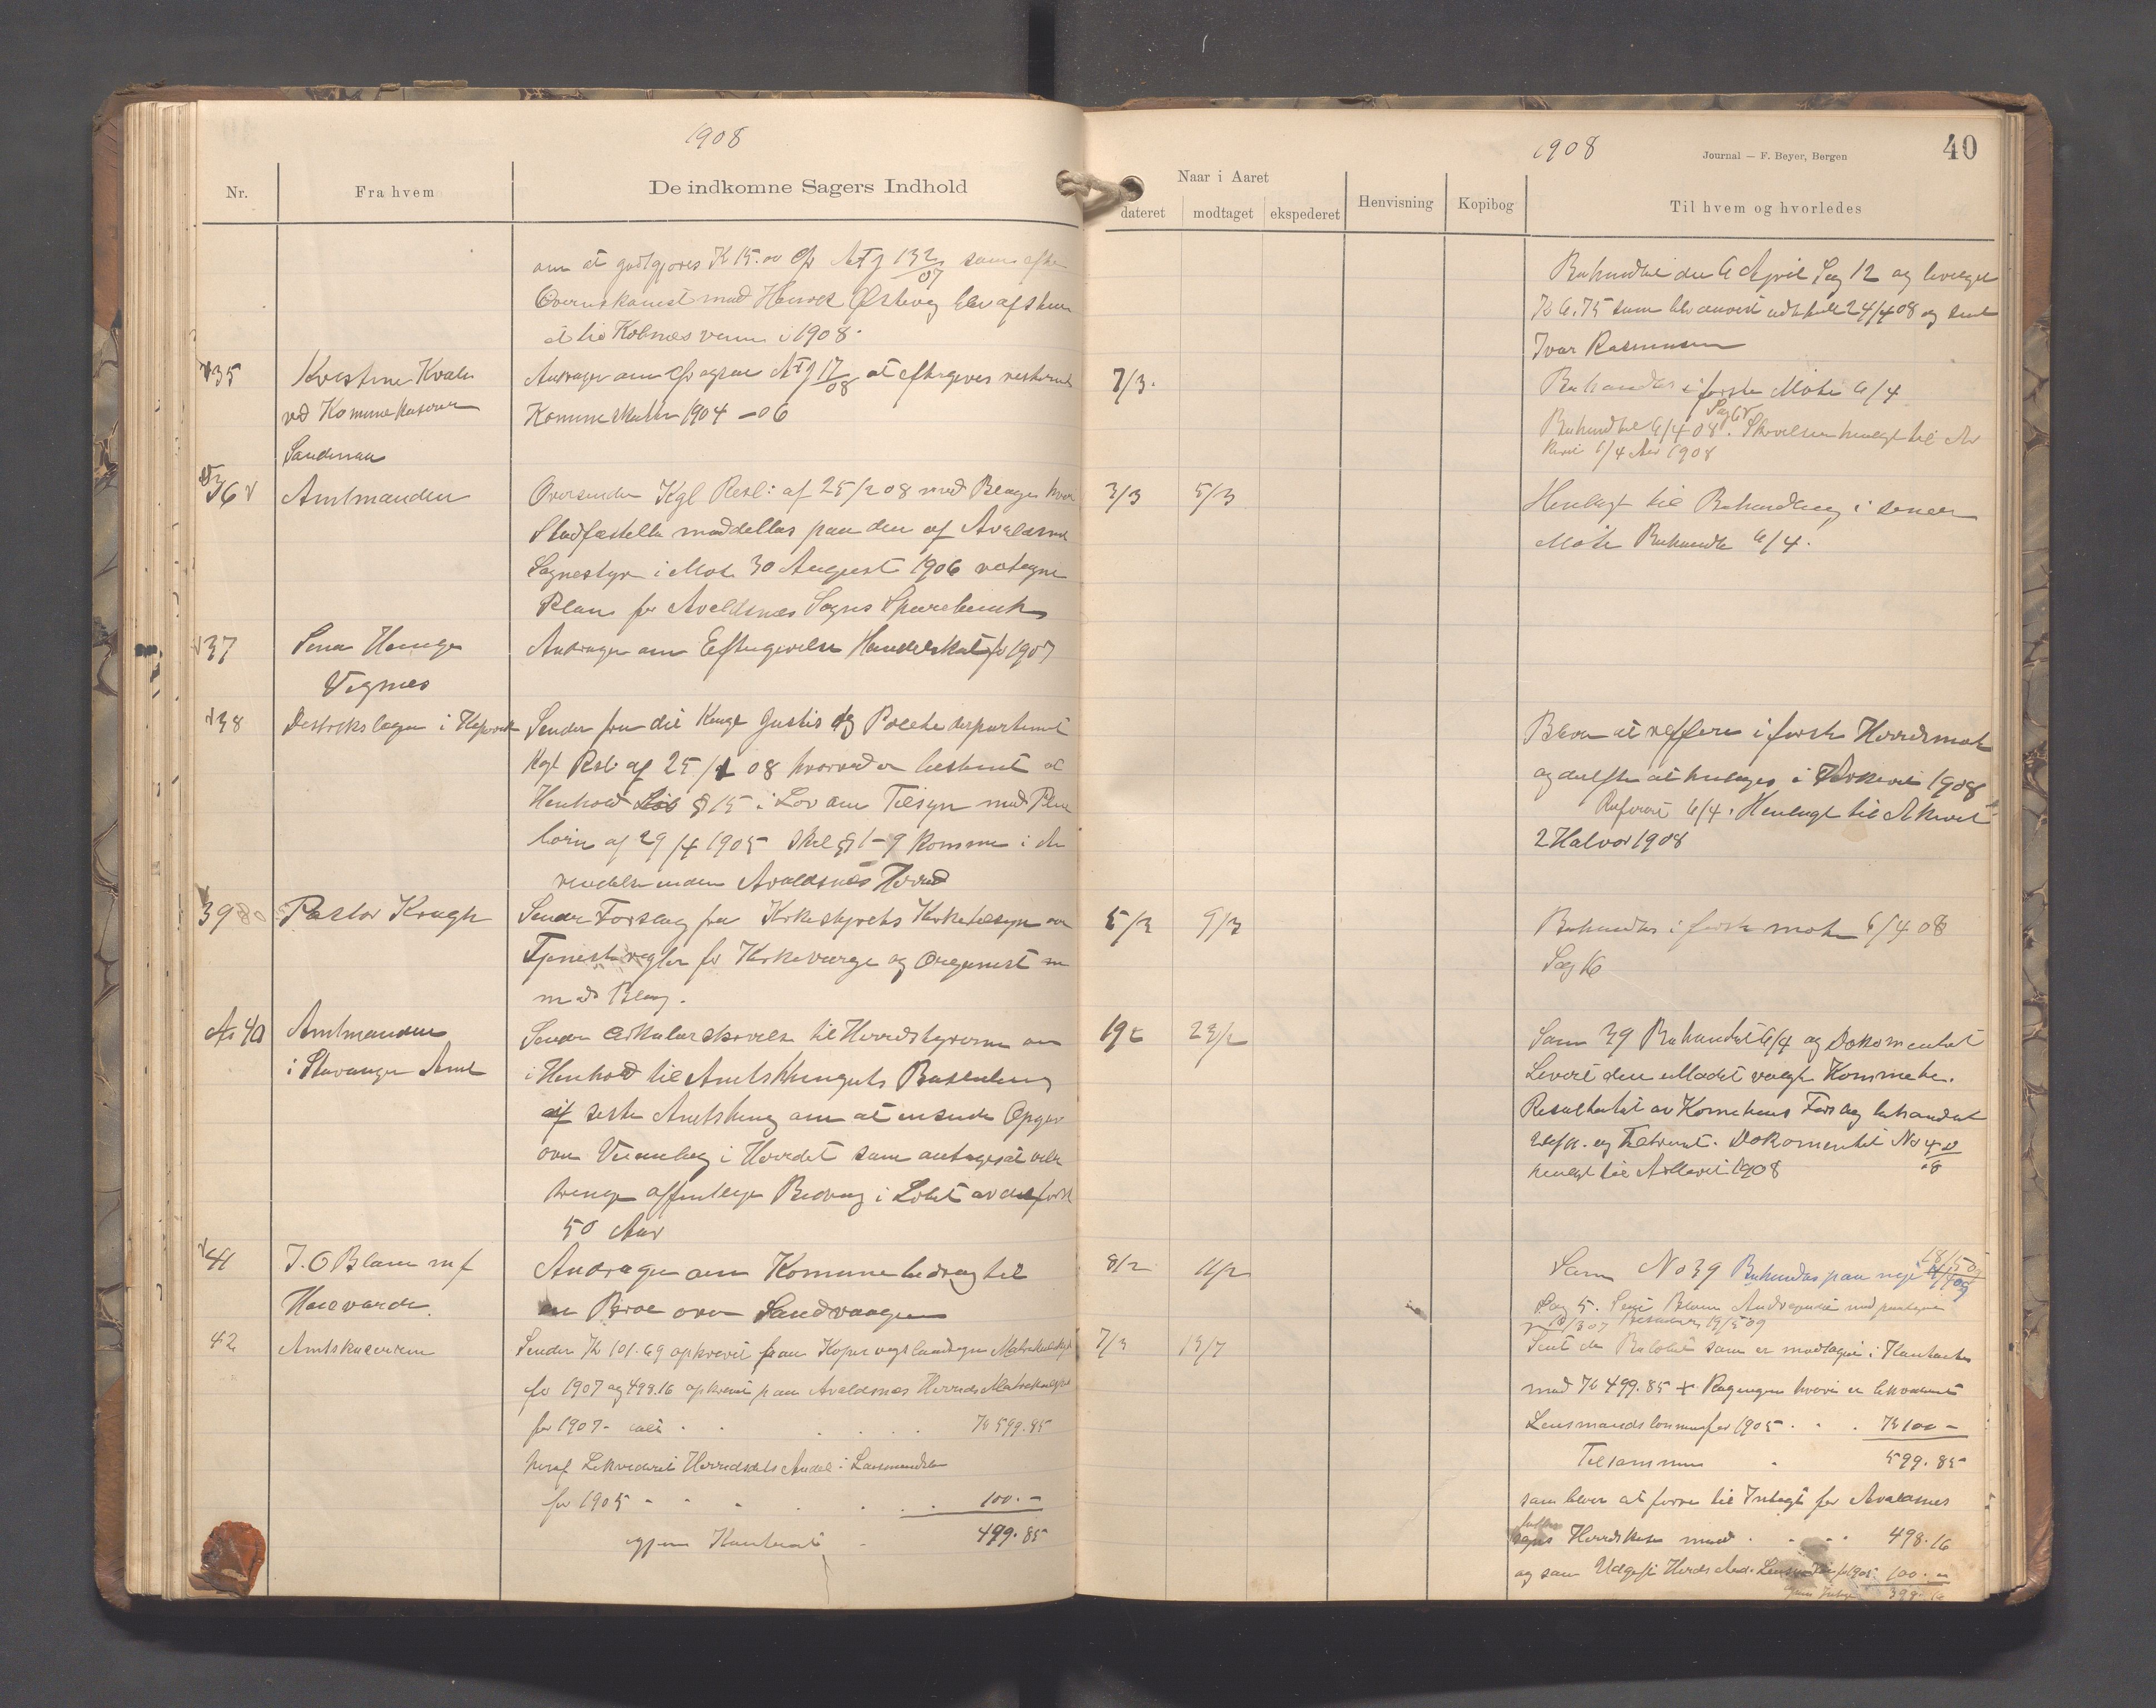 1908
Nr.
Fra hvem
De indkomne Sagers Indhold
om at godtgjøres K 15.00 Cfr 132/07 som efter
Overenskomst med Henrik Østevog blev
1908.
35
Kvale
ved Kommunekasserer
Sandenaa
Andrager om Cfr 17/08 at eftergives
Kommuneskatten 1904 – 06
36
Amtmanden
Oversender Kgl Resl: af 25/2 08 med Bilager hvor
Stadfæstelse meddelles paa den af Avaldsnes
Sognestyre i Møte 30 August 1906 vedtagne
Plan for Avaldsnes Sogns Sparebank
37
Sena Hauge
Vignes
Andrager om Eftergivelse Handelskat for 1907
38
Distrikslægen i Kopervik
Sender fra det Kongl Justis og Politi departement
Kgl Resl af 25/1 08 hvorved er bestemt at
Henhold § 15 i Lov om Tilsyn med Pleie
børn af 29/4 1905 skal § 1–9 komme i An
vendelse inden Avaldsnes Herred
39
Pastor Krogh
Sender Forslag fra Kirkestyrets Kirketilsyn om
Tjenesteregler for Kirkeværge og Organist m
med Bilag.
40
Amtmanden
i Stavanger Amt
Sender Cirkulærskrivelse til Herredstyrerne om
i Henhold til Amtsthingets Beslutning
af siste Amtsthing om at insende Opgave
over Veianlæg i Herredet som antages at ville
trenge offentlige Bidrag i Løbet av de første
50 Aar
41
J. O Blam m f
Haavarde.
Andrager om Kommunebidrag til
en Broe over Sandvaagen
42
Amtskasereren
Sender Kr 101.69 opkrevet paa Kopervigs landsogn Matrikulskat
for 1907 og 498.16 opkrevet paa Avaldsnes Herreds Matrikulskat
for 1907 - ialt Kr 599.85
heraf Likvideret Herredets Andel i Lensmandsløn
for 1905 - 100.–
igjen Kontant 499.85
1908
Journal — F. Beyer, Bergen
40
Naar i Aaret
dateret
modtaget
ekspederet
Henvisning
Kopibog
Til hvem og hvorledes
Behandlet den 6 April Sag 12 og bevilget
Kr 6.75 som blev anvist udbetalt 24/4 08 og sent
Ivar Rasmussen
7/3.
Behandles i første Møte 6/4
Behandlet 6/4 08. Skrivelsen henlagt til Ar
kivet 6/4 Aar 1908
3/3
5/3
Henlagt til Behandling i senere
Møte Behandlet 6/4.
Bliver at reffere i første Herredsmøte
og derefter at henlægges i Arkivet 1908
Referert 6/4. Henlagt til Arkivet
2 Halvor 1908
5/3
9/3
Behandles i første møte 6/4 08
Sag 16
19/2
23/2
Som 39 Behandlet 6/4 og Dokomentet
Levert den i Mødet valgte Kommite.
Resultatet av Komitens Forslag behandlet
og Tiltraat. Dokomentet No 40/08
henlagt til Arkivet 1908
8/2
11/2
Som No 39 Behandles paa nye 18/5 09
Sag 5.
7/3
13/7
Sent de Beløbet som er modtaget i Kontanter
med Kr 499.85 + Regningen hvori er likvideret
Lensmandslønnen for 1905 . . . Kr 100 –
Tilsammen 599.85
som bliver at føre til Indtægt for Avaldsnes
sogns Herredskasse med 498.16
og som Udgift Herreds And. Lensm. for 1905 100.–